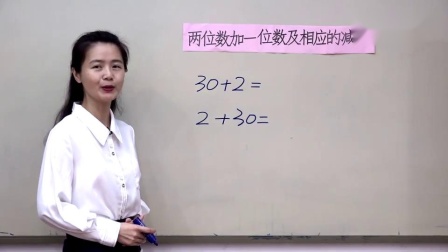 两位数加一位数及相应的减
30+2=
2+30=